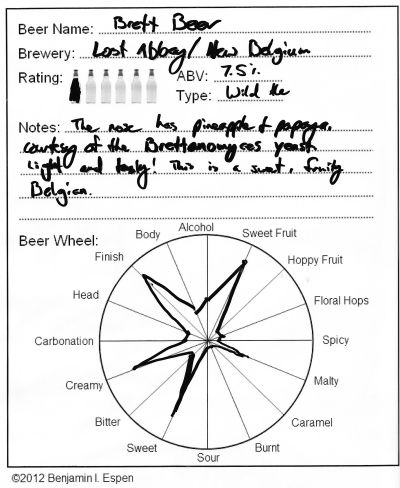 Beer Name: Brett Beer
Brewery: Lost Abbey / New Belgium
Rating:
ABV: 7.5%
Type: Wild Ale
Notes: The nose has pineapple & papaya,
courtesy of the Brettanomyces yeast.
Light and tasty! This is a sweet, fruity
Belgian.
Beer Wheel:
Alcohol
Body
Sweet Fruit
Finish
Hoppy Fruit
Head
Floral Hops
Carbonation
Spicy
Creamy
Malty
Bitter
Caramel
Sweet
Burnt
Sour
©2012 Benjamin I. Espen